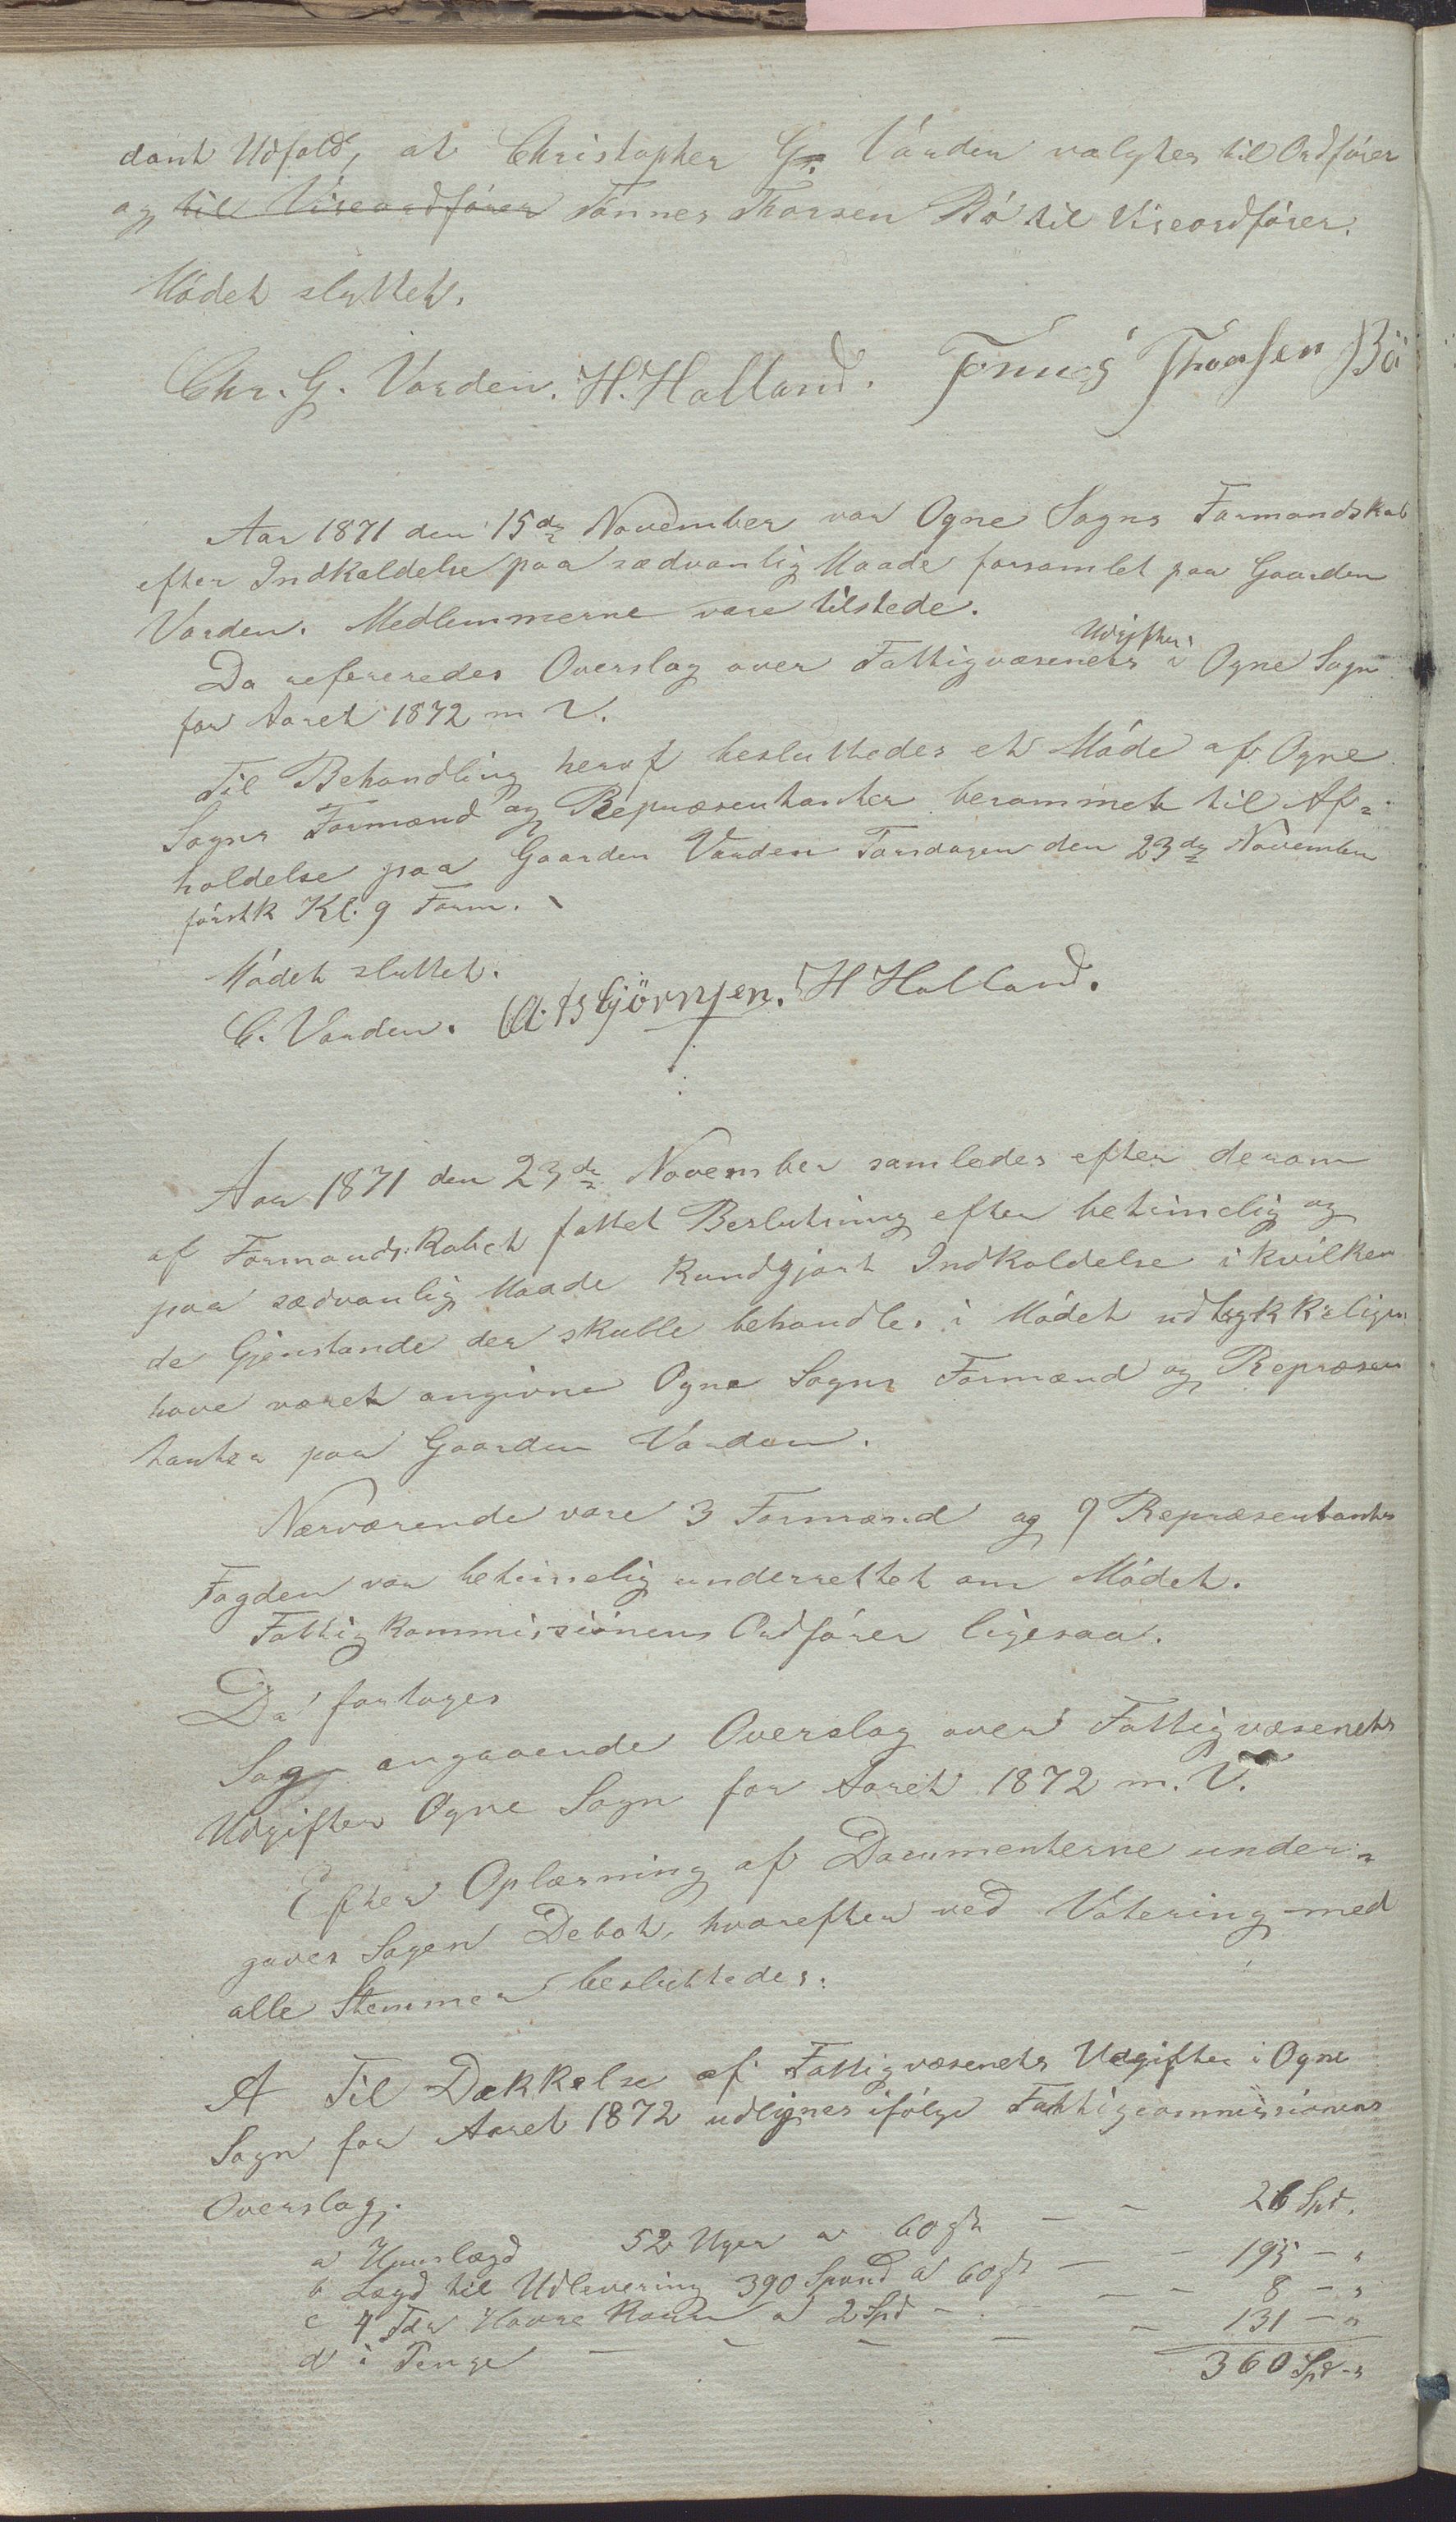 dant Udfald, at Christopher G. Varden valgtes til Ordfører
og til Viseordfører Tønnes Thorsen Bø til Viseordfører.
Mødet sluttet.
Chr. G. Varden. H. Halland. Tønnes Thorsen Bö
Aar 1871 den 15de November var Ogne Sogns Formandskab
efter Indkaldelse paa sædvanlig Maade forsamlet paa Gaarden
Varden. Medlemmerne vare tilstede.
Da refereredes Overslag over Fattigvæsenets Udgifter i Ogne Sogn
for Aaret 1872 m V.
Til Behandling heraf besluttedes et Møde af Ogne
Sogns Formænd og Repræsentanter berammet til Af-
holdelse paa Gaarden Varden Torsdagen den 23de November
førstk Kl. 9 Form.
Mødet sluttet.
C. Varden. A. Asbjörnsen. H Halland.
Aar 1871 den 23de November samledes efter derom
af Formandskabet fattet Beslutning efter betimelig og
paa sædvanlig Maade kundgjort Indkaldelse i hvilken
de Gjenstande der skulle behandles i Mødet udtrykkeligen
have været angivne Ogne Sogns Formænd og Repræsen
tanter paa Gaarden Varden.
Nærværende vare 3 Formænd og 9 Repræsentanter
Fogden var betimelig underrettet om Mødet.
Fattigkommissionens Ordfører ligesaa.
Da foretoges
Sag angaaende Overslag over Fattigvæsenets
Udgifter Ogne Sogn for Aaret 1872 m. V.
Efter Oplæsning af Documenterne under-
gaves Sagen Debat, hvorefter ved Votering med
alle Stemmer besluttedes:
A Til Dækkelse af Fattigvæsenets Udgifter i Ogne
Sogn for Aaret 1872 udlignes ifølge Fattigcommissionens
Overslag.
a Huuslægd 52 Uger a 60 sk — — 26 Spd.
b Lægd til Udlevering 390 Spand a 60 sk — — 195 — "
c 4 Tdr Havre Korn a 2 Spd — — — — 8 — "
d i Penge — — — — — 131 — "
360 Spd - "